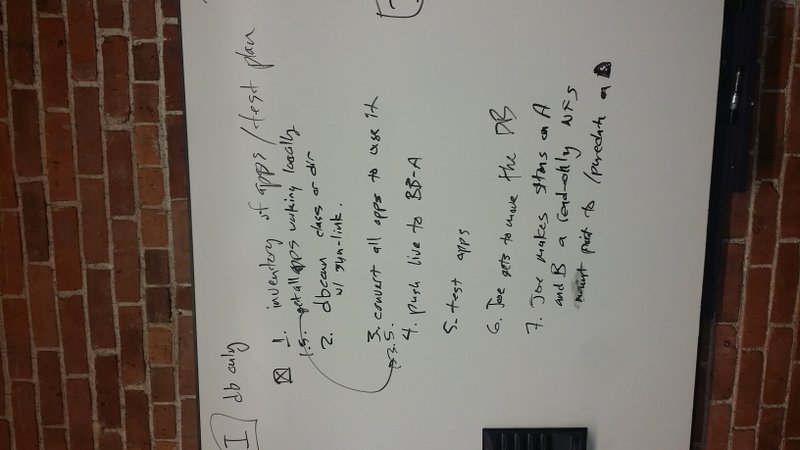 I db only
1. inventory of apps/test plan
1.5. get all apps working locally
2. dbconn class or dir
w/ sym-link.
3. convert all apps to use it
3.5.
4. push live to BB-A
5. test apps
6. Joe gets to move the DB
7. Joe makes sthns on A
and B a read-only NFS
mount point to / on D